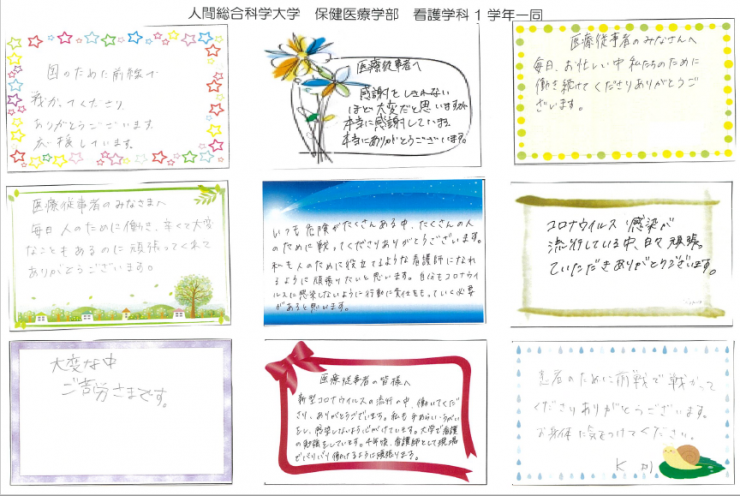 人間総合科学大学　保健医療学部　看護学科1学年一同
国のために前線で
戦ってくださり
ありがとうございます。
応援しています。
医療従事者へ
感謝をしきれない
ほど大変だと思いますが
本当に感謝しています。
本当にありがとうございます。
医療従事者のみなさんへ
毎日、お忙しい中 私たちのために
働き続けてくださりありがとうご
ざいます。
医療従事者のみなさまへ
毎日 人のために働き、辛くて大変
なこともあるのに 頑張ってくれて
ありがとうございます。
いつも危険がたくさんある中、たくさんの人
のために戦ってくださりありがとうございます。
私も人のために役立てるような看護師になれ
るように頑張りたいと思います。自分もコロナウイ
ルスに感染しないように行動に責任をもっていく必要
があると思います。
コロナウイルス感染が
流行している中、日々頑張っ
ていただきありがとうございます。
大変な中
ご苦労さまです。
医療従事者の皆様へ
新型コロナウイルスの流行の中、働いてくださ
り、ありがとうございます。私も手あらいうがい
をし、感染しないよう心がけています。大学で看護
の勉強をしています。4年後、看護師として現場
でバリバリ働けるように頑張ります。
患者のために前戦で戦って
くださりありがとうございます。
お身体に気をつけてください。